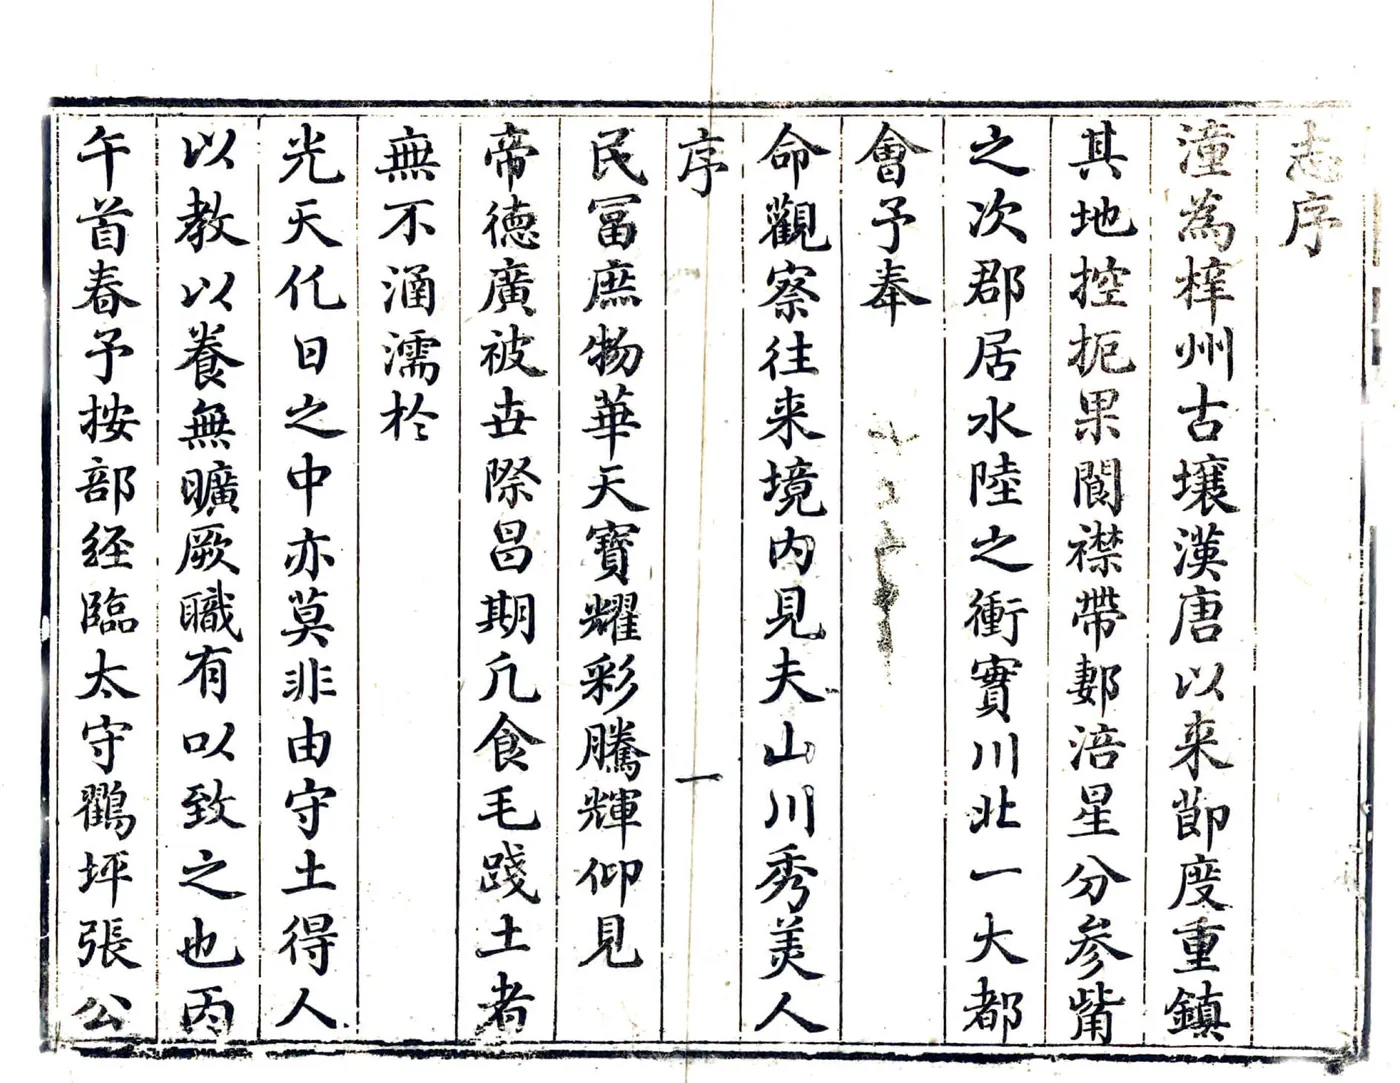 志序
潼為梓州古壤漢唐以来節度重鎮
其地控扼果閬襟帶郪涪星分参觜
之次郡居水陸之衝實川北一大都
會予奉
命觀察往来境内見夫山川秀美人
序 一
民冨庶物華天寶耀彩騰輝仰見
帝德廣被丗際昌期凢食毛踐土者
無不涵濡於
光天化日之中亦莫非由守土得人
以教以養無曠厥職有以致之也丙
午首春予按部经臨太守鸛坪張公